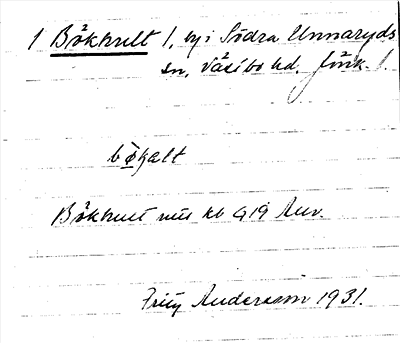 1 Bökhult 1, by i Södra Unnaryds
sn, Västbo hd. Jönk. l.
bökalt
Bökhult 1931 kb G 19 Auv.
Fritz Andersson 1931.